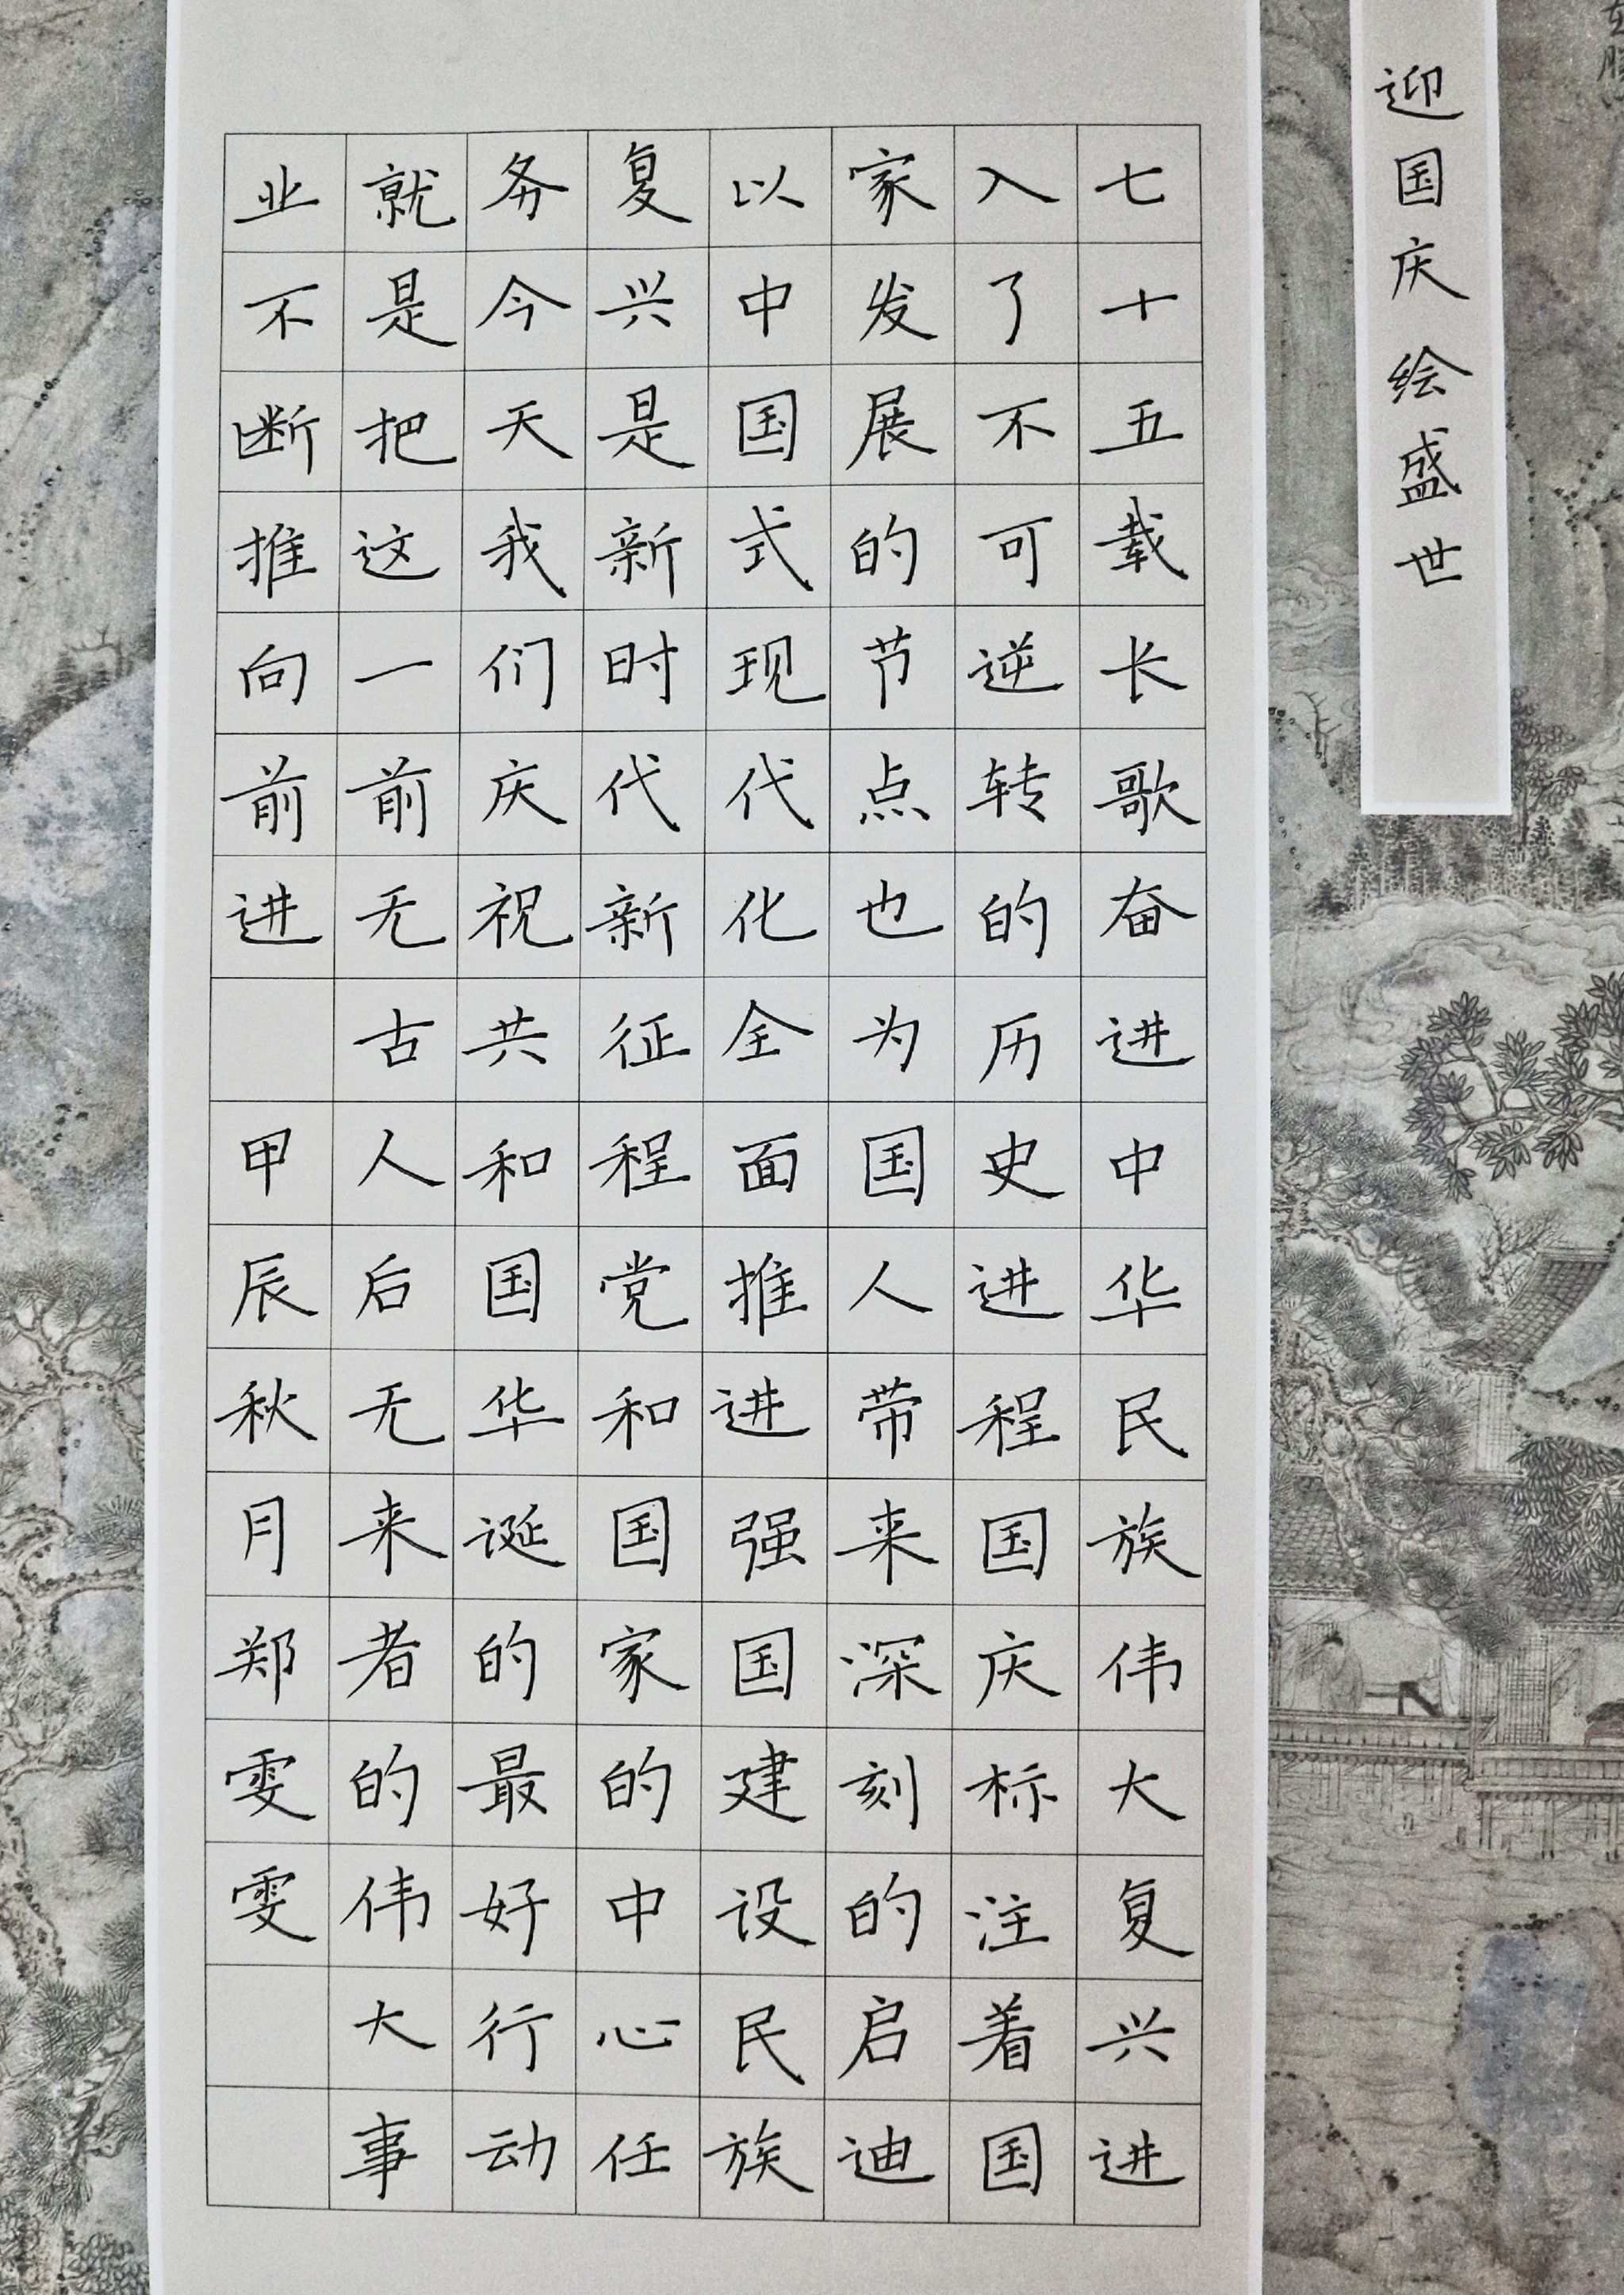 迎国庆 绘盛世
七十五载长歌奋进中华民族伟大复兴进
入了不可逆转的历史进程国庆标注着国
家发展的节点也为国人带来深刻的启迪
以中国式现代化全面推进强国建设民族
复兴是新时代新征程党和国家的中心任
务今天我们庆祝共和国华诞的最好行动
就是把这一前无古人后无来者的伟大事
业不断推向前进 甲辰秋月郑雯雯